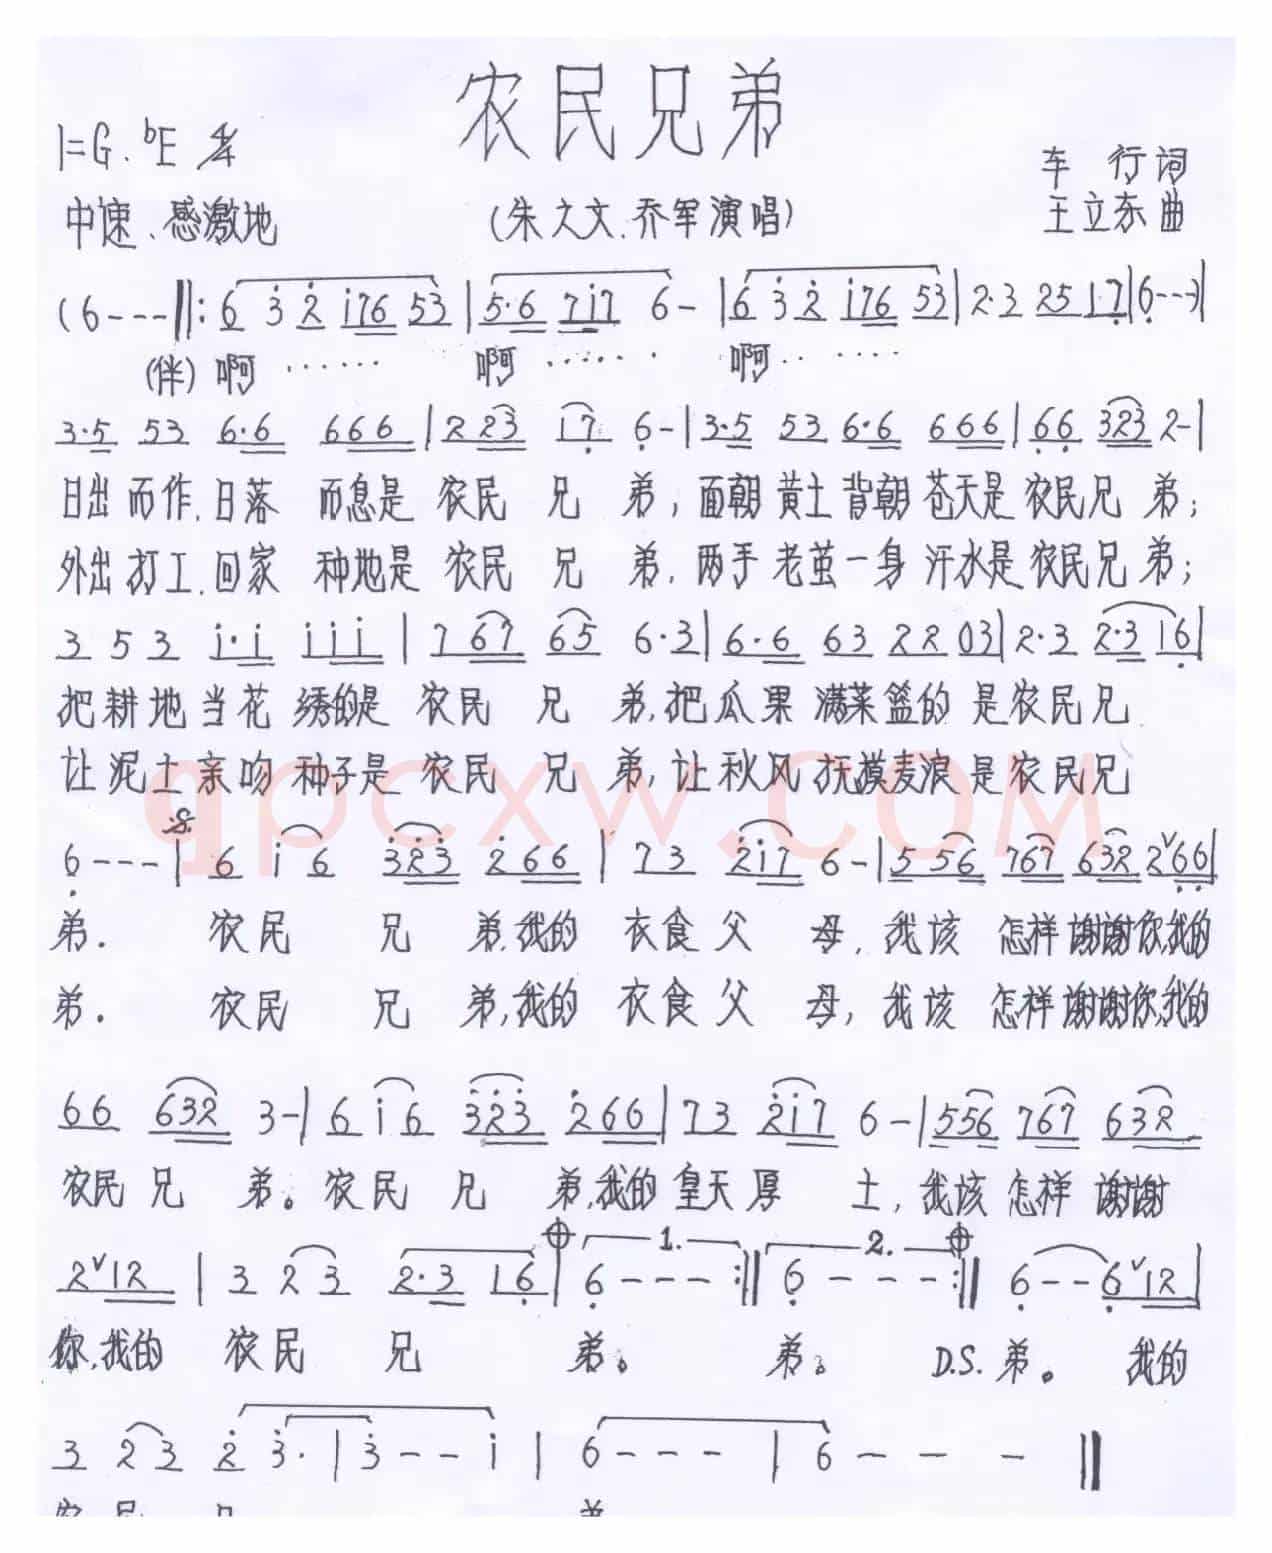 农民兄弟
1=G.bE 4/4
车 行词
中速、感激地 (朱之文.乔军演唱) 王立东曲
(6---‖:6 3 2 176 53|5·6 717 6-|6 3 2 176 53|2·3 25 1·7|6---)|
(伴)啊······ 啊······ 啊······
3·5 53 6·6 666|2 23 17 6-|3·5 53 6·6 666|66 323 2-|
日出而作.日落 而息是 农民 兄 弟;面朝黄土背朝苍天是农民兄 弟;
外出打工.回家 种地是 农民 兄 弟,两手老茧一身汗水是农民兄弟;
3 5 3 1·1 111|7 67 65 6·3|6·6 63 22 03|2·3 2·3 16|
把耕地当花 绣的是 农民 兄 弟,把瓜果 满菜篮的 是农民兄
让泥土亲吻种子是 农民 兄 弟,让秋风抚摸麦浪是农民兄
6---|6 1 6 323 266|73 217 6-|5 56 767 632 2∨66|
弟. 农民 兄 弟,我的 衣食父 母,我该 怎样谢谢你,我的
弟. 农民 兄 弟,我的 衣食父 母,我该 怎样谢谢你,我的
66 632 3-|6 1 6 323 266|73 217 6-|556 767 632
农民兄 弟。农民 兄 弟,我的皇天厚 土,我该怎样谢谢
1. 2.
2∨12|3 2 3 2·3 16|6---:‖6---:‖6--6∨12|
你,我的 农民 兄 弟。 弟。 D.S.弟。 我的
3 2 3 2 3·|3--1|6---|6---‖